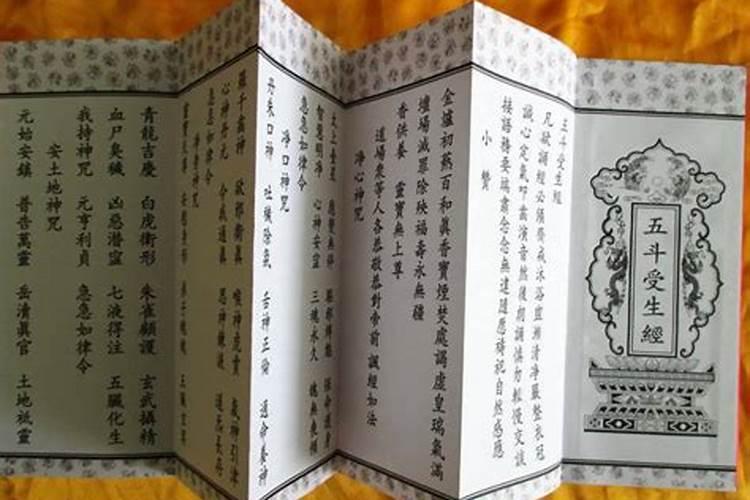 五斗受生經
五斗受生經
凡欲誦經必須齋戒沐浴盥漱清淨嚴整衣冠
誠心定氣叩齒演音然後朗誦慎勿輕慢交談
接語務要端肅念念無違隨應禱祀自然感應
小贊
金爐初熱百和真香寶煙焚處謁虛皇瑞氣滿
壇場滅罪除殃福壽永無疆
香供養 靈寶無上尊
道場眾等人各恭敬恭對帝前 誦經如法
淨心神咒
太上臺星 應變無停 驅邪縛魅 保命護身
智慧明淨 心神安寧 三魂永久 魄無喪傾
急急如律令
淨口神咒
丹朱口神 吐穢除氛 舌神正倫 通命養神
羅千齒神 卻邪衛真 喉神虎賁 炁神引津
心神丹元 令我通真 思神鍊液 道炁長存
急急如律令
淨身神咒
靈寶天尊 安慰身形 弟子魂魄 五臟玄冥
青龍吉慶 白虎衛形 朱雀顧護 玄武攝精
血尸臭穢 凶惡潛窒 七液得注 五臟化生
我持神咒 元亨利貞 急急如律令
安土地神咒
元始安鎮 普告萬靈 岳清真官 土地祗靈